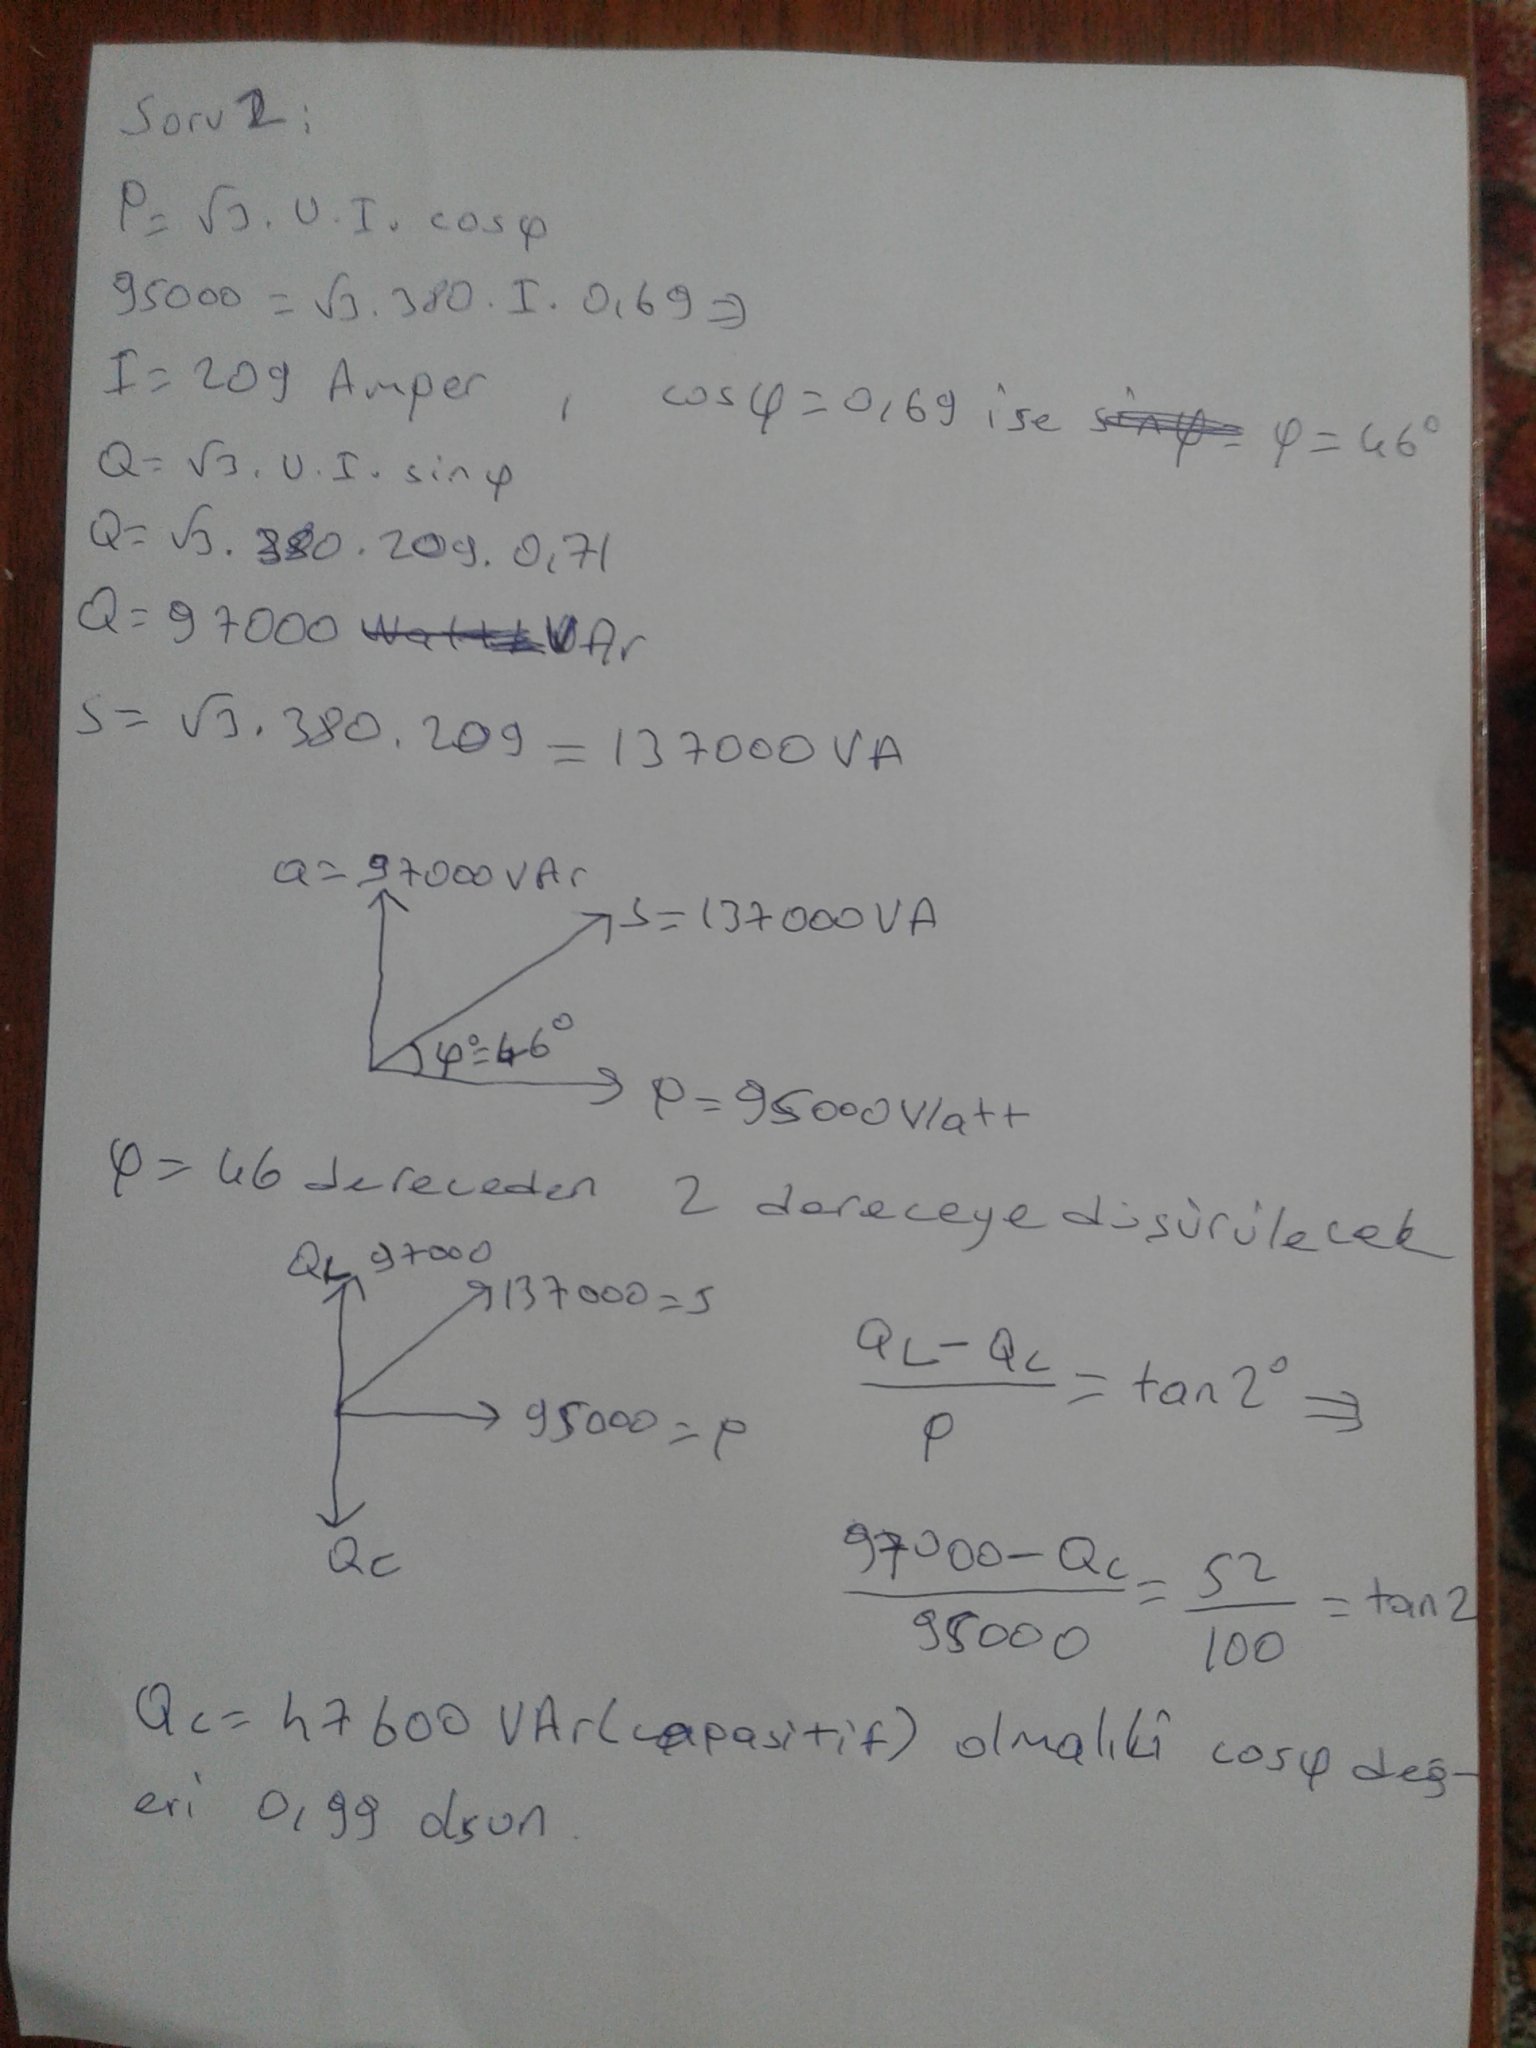 Soru 2:
P = √3. U. I. cosφ
95000 = √3. 380. I. 0,69 ⇒
I = 209 Amper , cosφ = 0,69 ise φ = 46°
Q = √3. U. I. sinφ
Q = √3. 380. 209. 0,71
Q = 97000 VAr
S = √3. 380. 209 = 137000 VA
Q = 97000 VAr
S = 137000 VA
φ° = 46°
P = 95000 Watt
φ = 46 dereceden 2 dereceye düşürülecek
QL 97000
137000 = S
95000 = P
QC
QL - QC / P = tan2° ⇒
97000 - QC / 95000 = 52 / 100 = tan2
QC = 47600 VAr (capasitif) olmalıki cosφ değ-
eri 0,99 olsun.